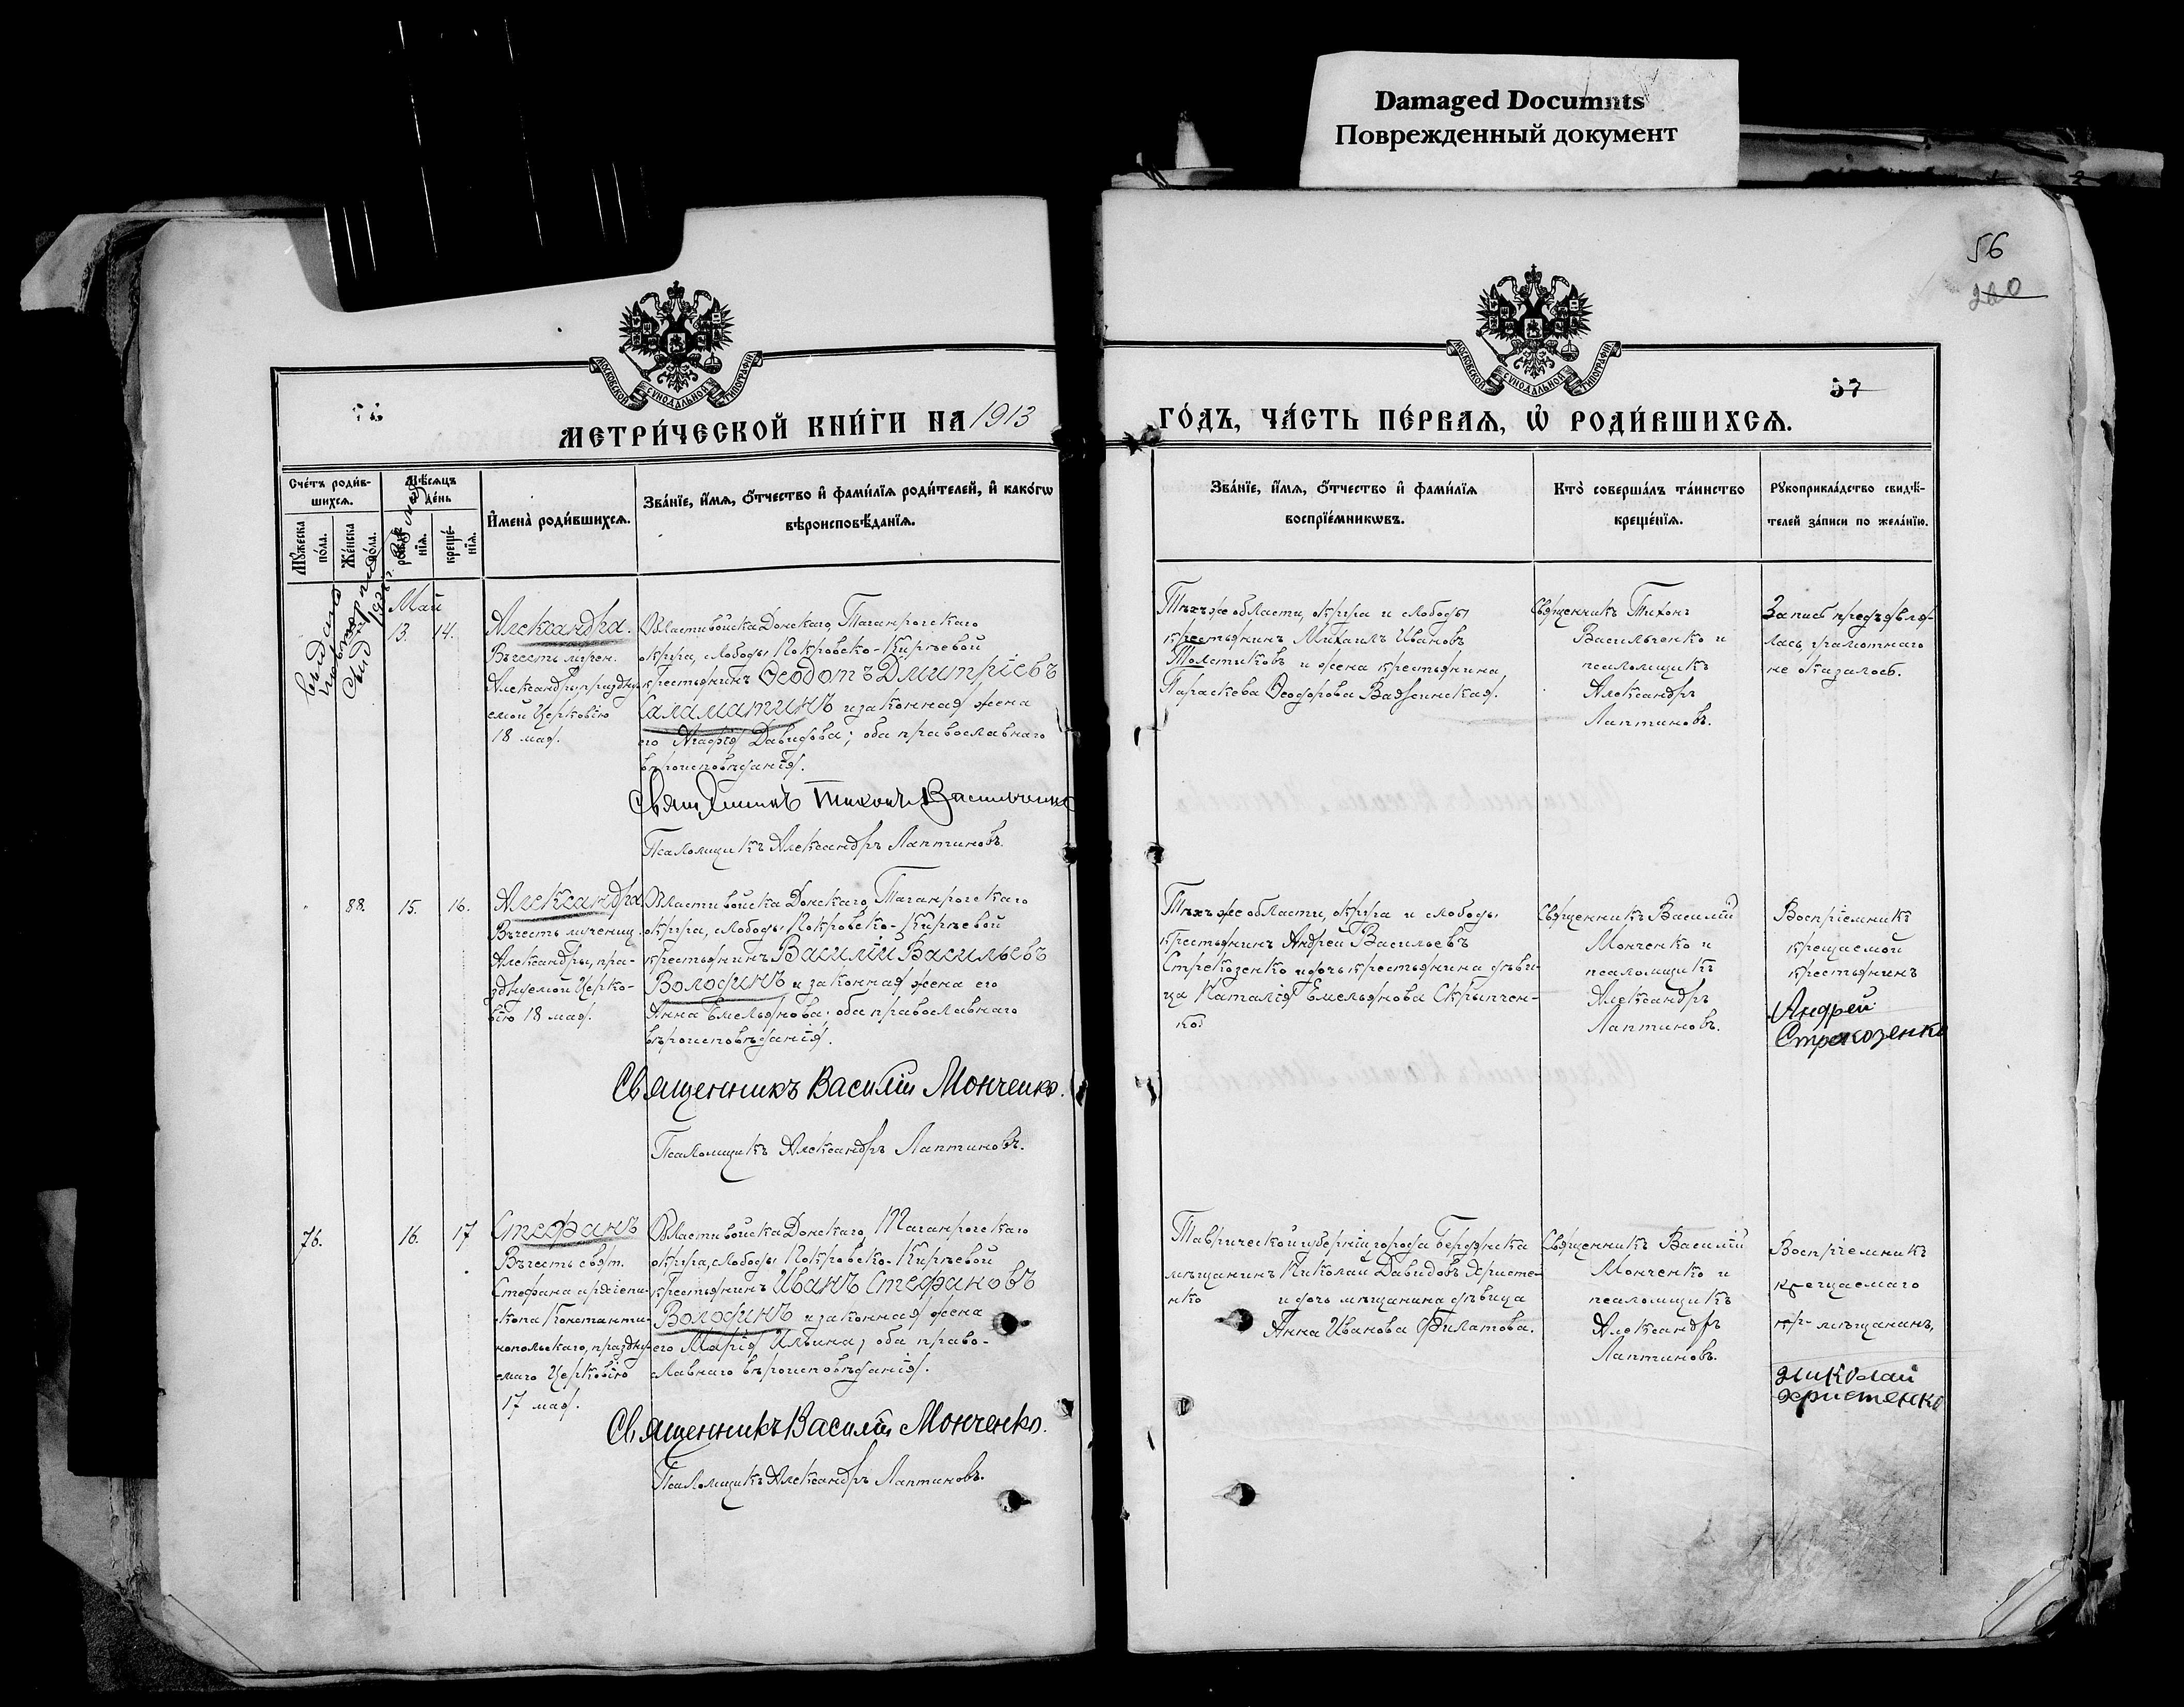 Damaged Documnts
Поврежденный документ
56
200
57
МОСКОВСКОЙ СУНОДАЛЬНОЙ ТИПОГРАФІИ
МОСКОВСКОЙ СУНОДАЛЬНОЙ ТИПОГРАФІИ
МЕТРИ́ЧЕСКОЙ КНИ́ГИ НА 1913
ГО́ДЪ, ЧА́СТЬ ПЕ́РВАѦ, Ѡ҆ РОДИ́ВШИХСѦ.
Сче́тъ роди́в-
шихсѧ.
Мꙋ́жеска
по́ла.
Же́нска
по́ла.
Мѣ́сѧцъ
и де́нь
рожде́-
нїѧ.
креще́-
нїѧ.
И҆мена̀ роди́вшихсѧ.
Зва́нїе, и҆́мѧ, ѻ҆́тчество и҆ фами́лїѧ роди́телей, и҆ како́гѡ
вѣроисповѣ́данїѧ.
Зва́нїе, и҆́мѧ, ѻ҆́тчество и҆ фами́лїѧ
воспрїе́мникѡвъ.
Кто̀ соверша́лъ та́инство
креще́нїѧ.
Рꙋкоприкла́дство свидѣ́-
телей за́писи по жела́нїю.
Май
13. 14.
Александра.
Въ честь мучен.
Александры, праздну-
емой Церковію
18 мая.
Области войска Донскаго, Таганрогскаго
округа, слободы Покровско-Кирѣевой
крестьянинъ Ѳеодотъ Дмитріевъ
Саламатинъ и законная жена
его Агафія Давидова; оба православнаго
вѣроисповѣданія.
Священникъ Тихонъ Васильченко
Псаломщикъ Александръ Лаптиновъ.
Тѣхъ же области, округа и слободы
крестьянинъ Михаилъ Ивановъ
Толстиковъ и жена крестьянина
Параскева Ѳеодорова Важинская.
Священникъ Тихонъ
Васильченко и
псаломщикъ
Александръ
Лаптиновъ.
Запись предъявля-
лась, грамотнаго
не оказалось.
88. 15. 16.
Александра
Въ честь мучениц.
Александры, пра-
зднуемой Церко-
вію 18 мая.
Области войска Донскаго, Таганрогскаго
округа, слободы Покровско-Кирѣевой
крестьянинъ Василій Васильевъ
Володинъ и законная жена его
Анна Емельянова; оба православнаго
вѣроисповѣданія.
Священникъ Василій Монченко.
Псаломщикъ Александръ Лаптиновъ.
Тѣхъ же области, округа и слободы
крестьянинъ Андрей Васильевъ
Стрекозенко и дочь крестьянина дѣви-
ца Наталія Емельянова Скрыпчен-
ко
Священникъ Василій
Монченко и
псаломщикъ
Александръ
Лаптиновъ.
Воспріемникъ
крещаемой
крестьянинъ
Андрей
Стрекозенко
76. 16. 17
Стефанъ
Въ честь свят.
Стефана архіепи-
скопа Константи-
нопольскаго, праздну-
емаго Церковію
17 мая.
Области войска Донскаго, Таганрогскаго
округа, слободы Покровско-Кирѣевой
крестьянинъ Иванъ Стефановъ
Володинъ и законная жена
его Марія Ильина; оба право-
славнаго вѣроисповѣданія.
Священникъ Василій Монченко.
Псаломщикъ Александръ Лаптиновъ.
Таврической губерніи, города Бердянска
мѣщанинъ Николай Давидовъ Христе-
нко и дочь мѣщанина дѣвица
Анна Иванова Филатова.
Священникъ Василій
Монченко и
псаломщикъ
Александръ
Лаптиновъ.
Воспріемникъ
крещаемаго
мѣщанинъ,
Николай
Христенко